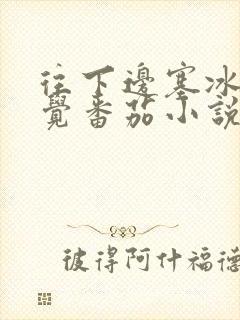 往下邊塞冰
覺番茄小說
彼得阿什福德